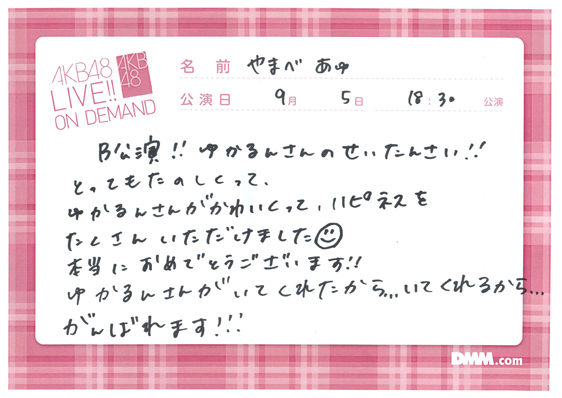 AKB48
LIVE!!
ON DEMAND
AKB
48
名前 やまべ あゆ
公演日 9月 5日 18:30 公演
B公演!! ゆかるんさんのせいたんさい!!
とってもたのしくって、
ゆかるんさんがかわいくって、ハピネスを
たくさんいただけました
本当におめでとうございます!!
ゆかるんさんがいてくれたから...いてくれるから...
がんばれます!!!
DMM.com